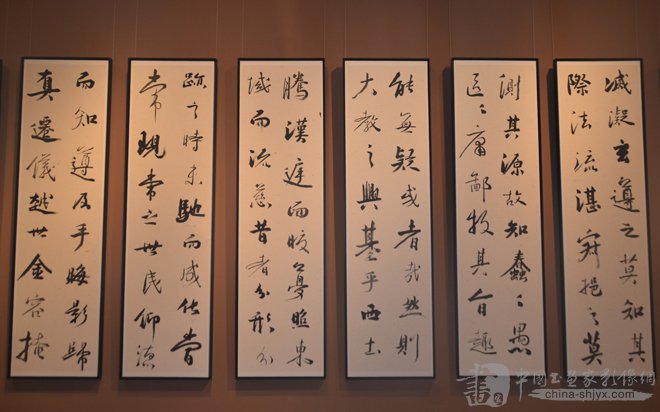 减凝玄遵之莫知其
際法流湛寂挹之莫
測其源故知蠢々愚
區々庸鄙投其旨趣
能無疑或者哉然則
大教之興基乎西土
騰漢庭而皎夢照東
域而流慈昔者分形分
跡之時未馳而成化當
常現常之世民仰德
而知遵及乎晦影歸
真遷儀越世金容掩
畫
中國書畫家影像網
china-shjyx.com